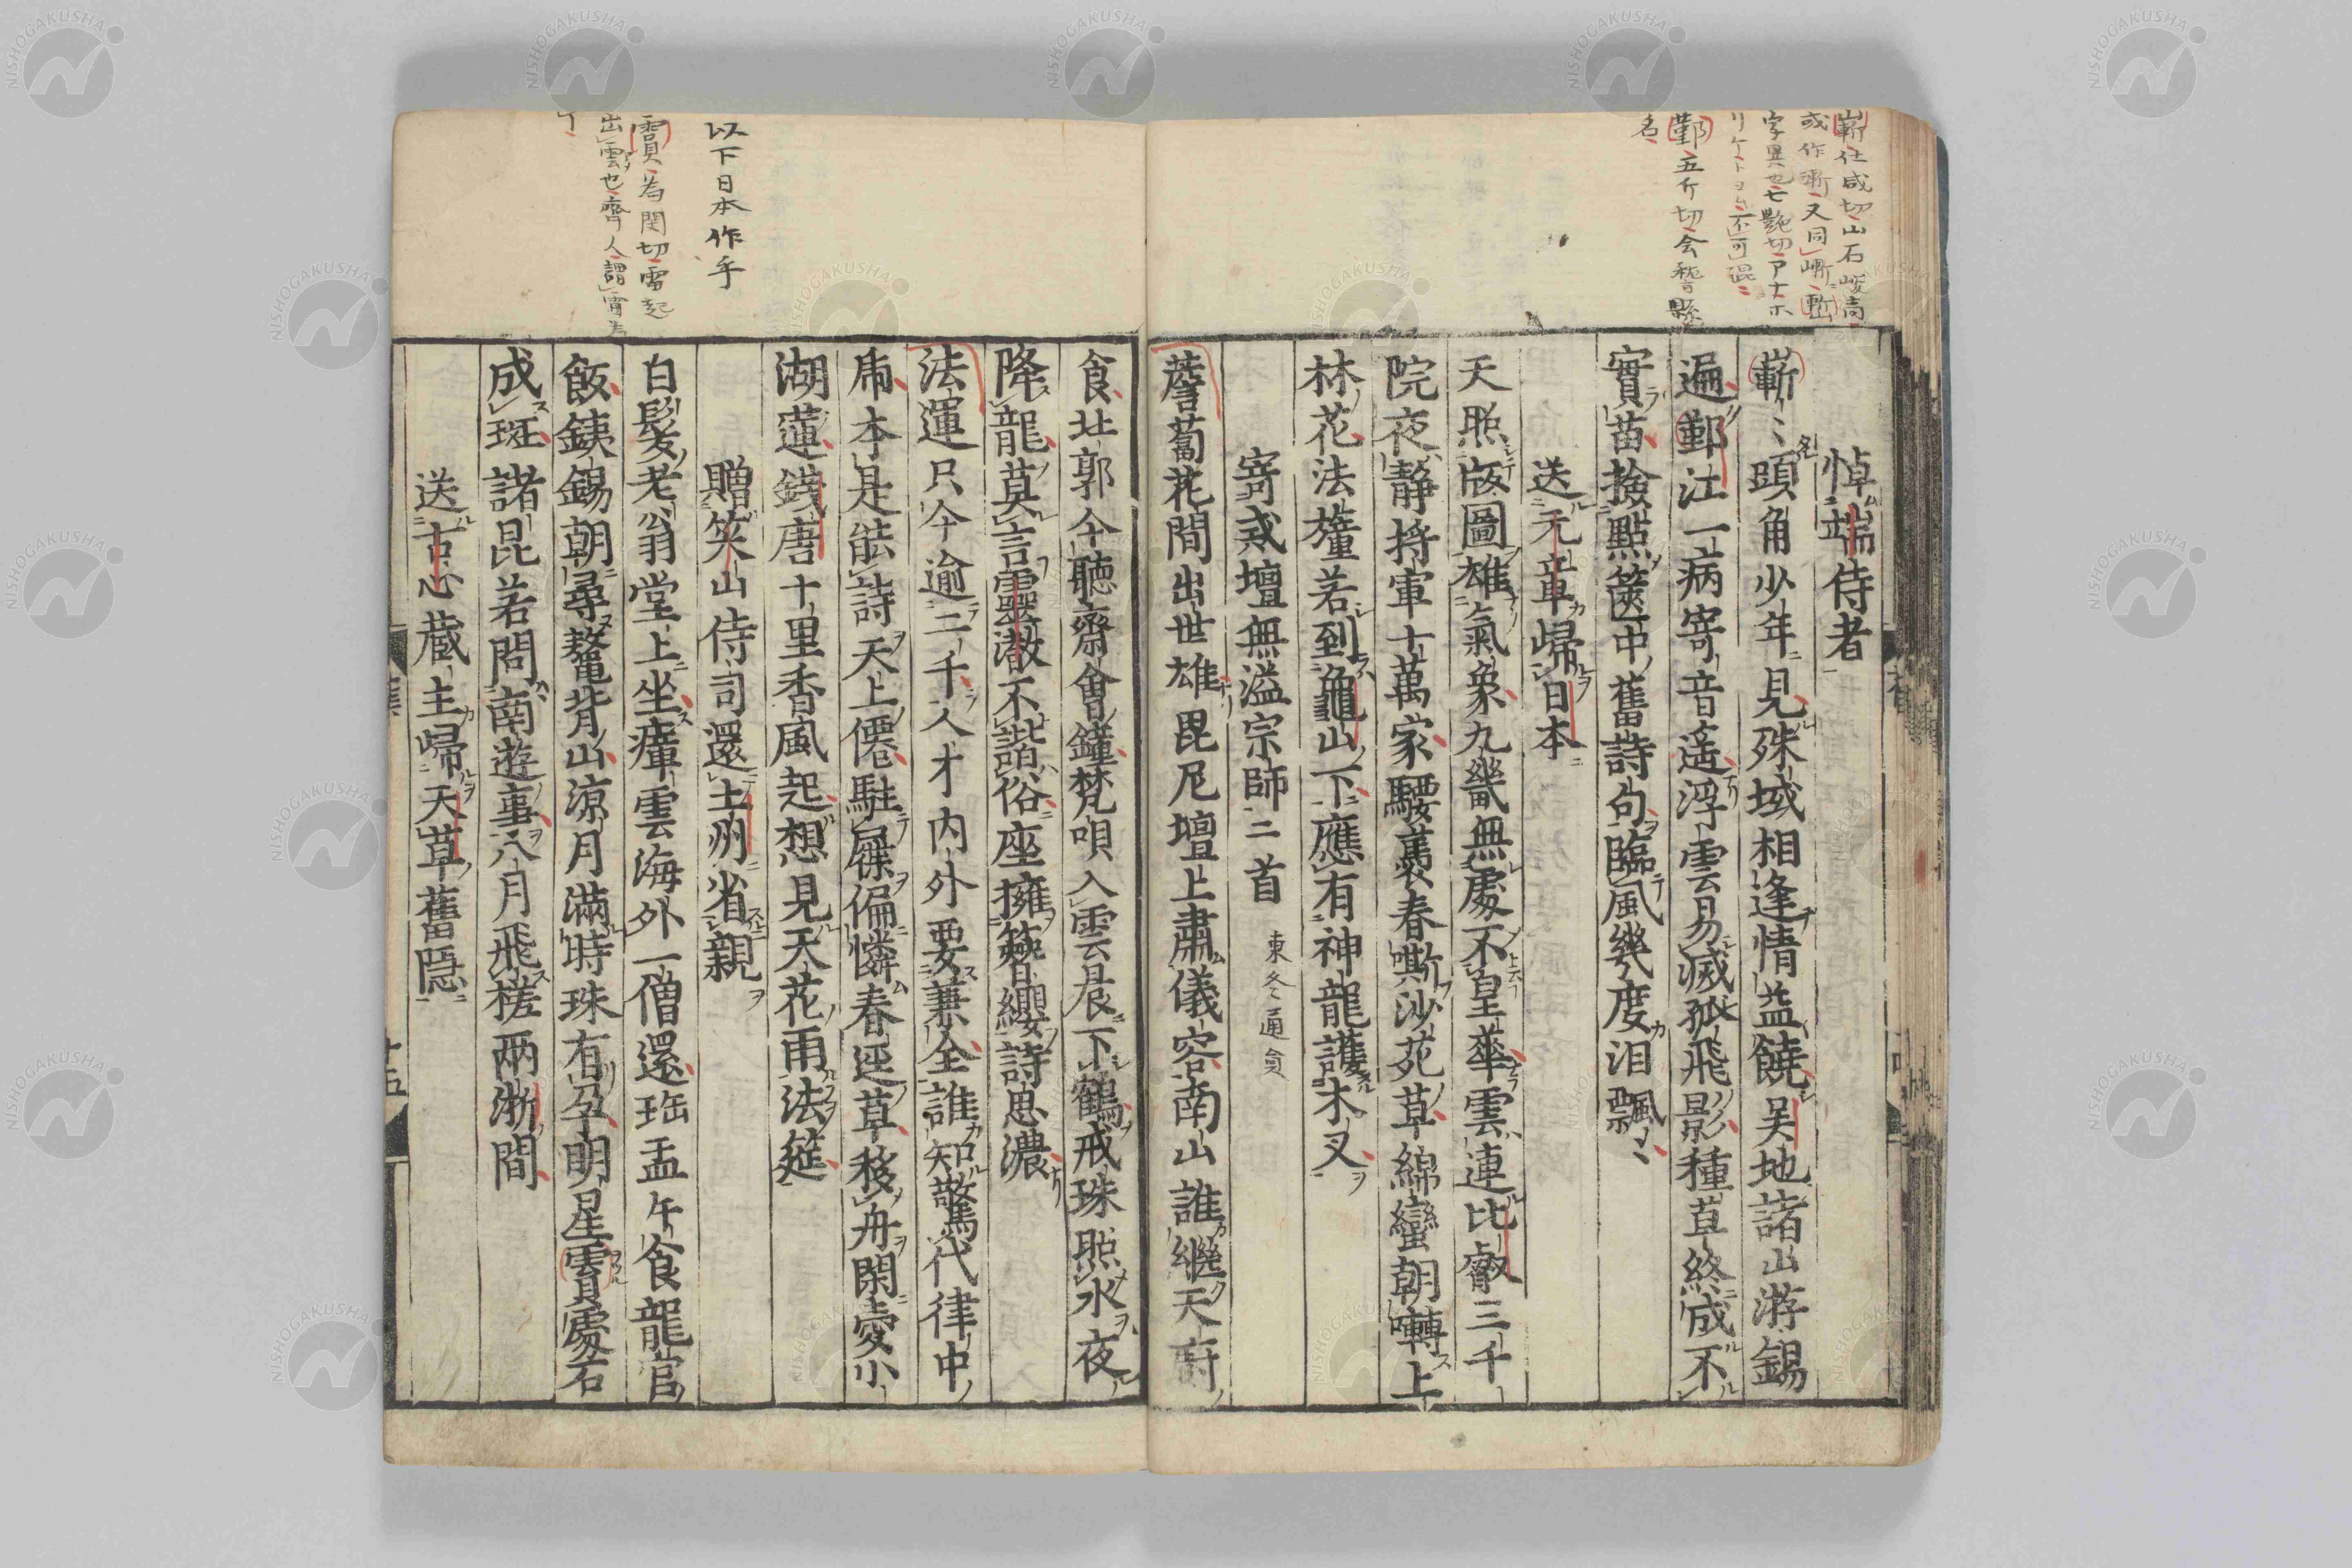 嶄仕咸切山石峻高
或作漸又同嶃塹
字異也七艷切アナホ
リケトヨム不可混
鄞五斤切会稽縣
名
悼端侍者
嶄〻頭角少年見殊域相逢情益饒吴地諸山游錫
遍鄞江一病寄音遥浮雲易滅孤飛影種草終成不
實苗撿點篋中舊詩句臨風幾度泪飄〻
送元章歸日本
天照版圖雄氣象九畿無處不皇華雲連比叡三千
院夜静将軍十萬家騕褭春嘶沙苑草綿蠻朝囀上
林花法幢若到龜山下應有神龍護木叉
寄戎壇無溢宗師二首 東冬通食
薝蔔花間出世雄毘尼壇上肅儀容南山誰繼天厨
食北郭今聽齋會鐘梵唄入雲晨下鶴戒珠照水夜
降龍莫言靈澈不諧俗座擁簪纓詩思濃
法運只今逾二千人才内外要兼全誰知驚代律中
虎本是能詩天上僊駐屧偏憐春逕草移舟閑愛小
湖蓮錢唐十里香風起想見天花雨法筵
贈笑山侍司還土州省親
白髪老翁堂上坐瘴雲海外一僧還珤盂午食龍宫
飯銕錫朝尋鼇背山凉月滿時珠有孕明星霣處石
成斑諸昆若問南遊事八月飛槎兩浙間
送古心蔵主歸天草舊隠
以下日本作乎
霣為閔切雷起
出雲也齊人謂霄為
十五
NISHOGAKUSHA